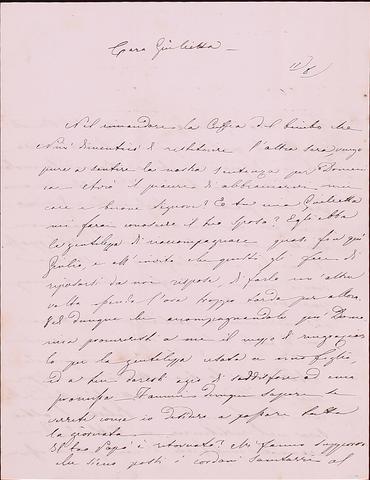 Cara Giulietta –
11/8
Nel rimandare la Cuffia del bimbo che
Ninì dimenticò di restituire l'altra sera vengo
pure a sentire la vostra sentenza per Domeni
ca. Avrò il piacere di abbracciarvi mie
care e buone signore? E tu mia Giulietta
mi farai conoscere il tuo sposo? Egli ebbe
la gentilezza di riaccompagnare quasi fin qui
Giulio, e all'invito che questi gli fece di
riposarsi da noi rispose, di farlo un'altra
volta essendo l'ora troppo tarda per allora.
Ed dunque che accompagnandole per Dome
nica porgeresti a me il mezzo di ringraziar
lo per la gentilezza usata a mio figlio,
ed a lui daresti agio di soddisfare ad una
promessa. Fammi dunque sapere se
verrete come io desidero a passare tutta
la giornata.
Il tuo Papà è ritornato? Mi fanno supporre
che sieno posti i cordoni sanitari al